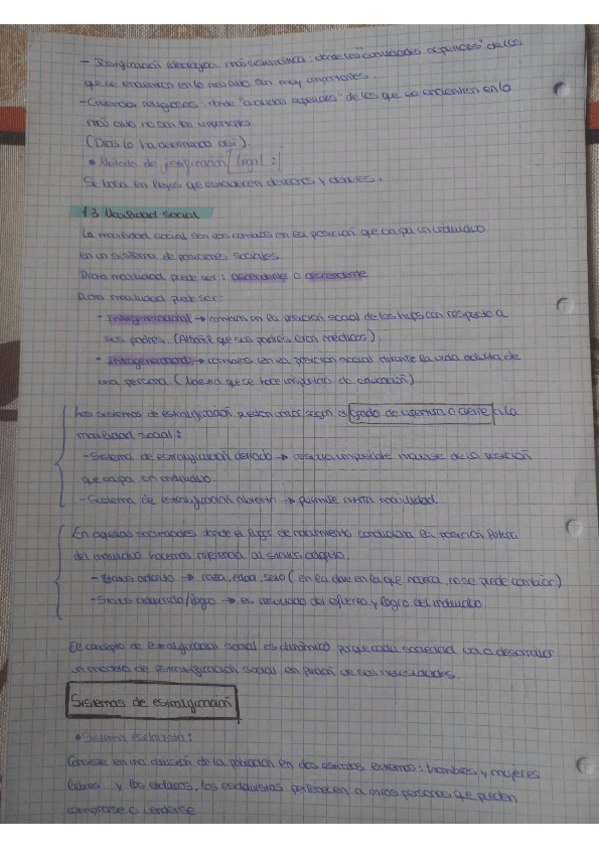 - Estratificación ideológica más economicista: donde las "cualidades especiales" de los
que se encuentran en lo más alto son muy importantes.
- Creencias religiosas: donde "cualidades especiales" de los que se encuentren en lo
más alto no son las importantes
(Dios lo ha determinado así).
• Método de justificación legal:
Se basa en leyes que establecen deberes y
1.3 Movilidad social
La movilidad social son los cambios en la posición que ocupa un individuo
en un sistema de posiciones sociales.
Dicha movilidad puede ser: ascendente o descendente
Dicha movilidad puede ser:
- Intergeneracional → cambios en la posición social de los hijos con respecto a
sus padres. (Albañil que sus padres eran médicos).
- Intrageneracional → cambios en la posición social durante la vida adulta de
una persona. (que se hace inspector de educación).
Los sistemas de estratificación pueden variar según el grado de apertura o cierre a la
movilidad social:
- Sistema de estratificación cerrado → resulta imposible moverse de la posición
que ocupa un individuo.
- Sistema de estratificación abierto → permite cierta movilidad.
En aquellas sociedades donde el lugar de nacimiento condiciona la posición futura
del individuo hacemos referencia al status adscrito.
- Status adscrito → raza, edad, sexo (en la clase en la que nazca, no se puede cambiar)
- Status adquirido/logro → es resultado del esfuerzo y logro del individuo.
El concepto de estratificación social es dinámico porque cada sociedad va a desarrollar
un modelo de estratificación social en función de sus necesidades.
Sistemas de estratificación
• Sistema esclavista:
Consiste en una división de la población en dos estratos extremos: hombres y mujeres
libres y los esclavos, los esclavistas pertenecen a otras personas que pueden
comprarse o venderse